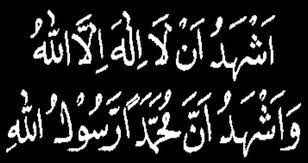 اَشْهَدُ اَنْ لَا اِلٰهَ اِلَّا اللّٰهُ
وَاَشْهَدُ اَنَّ مُحَمَّدًا رَسُوْلُ اللّٰهِ